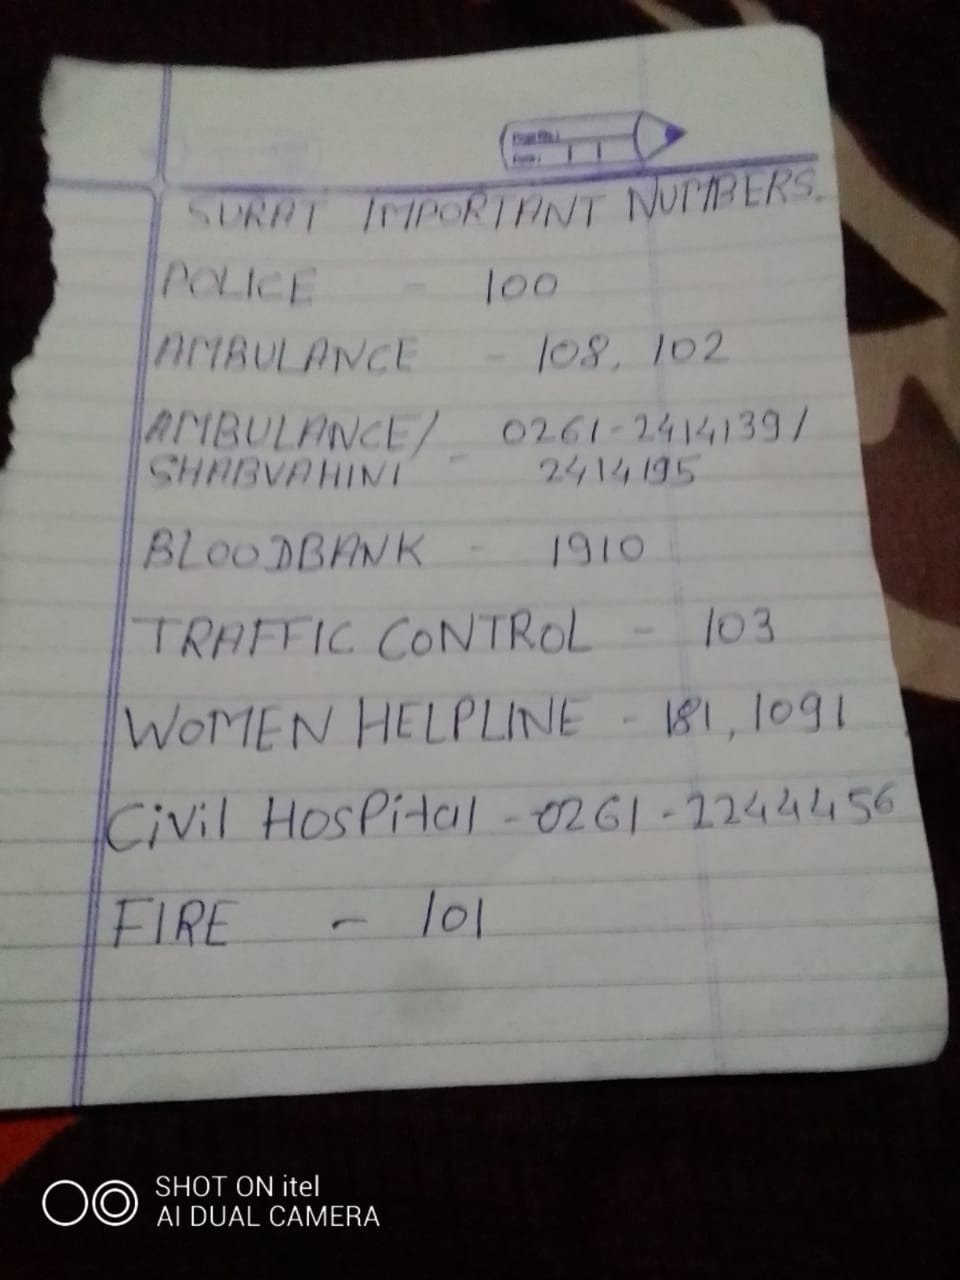 SURAT IMPORTANT NUMBERS.
POLICE - 100
AMBULANCE - 108, 102
AMBULANCE/ - 0261-2414139/
SHABVAHINI 2414195
BLOODBANK - 1910
TRAFFIC CONTROL - 103
WOMEN HELPLINE - 181, 1091
Civil HosPital - 0261-2244456
FIRE - 101
SHOT ON itel
AI DUAL CAMERA